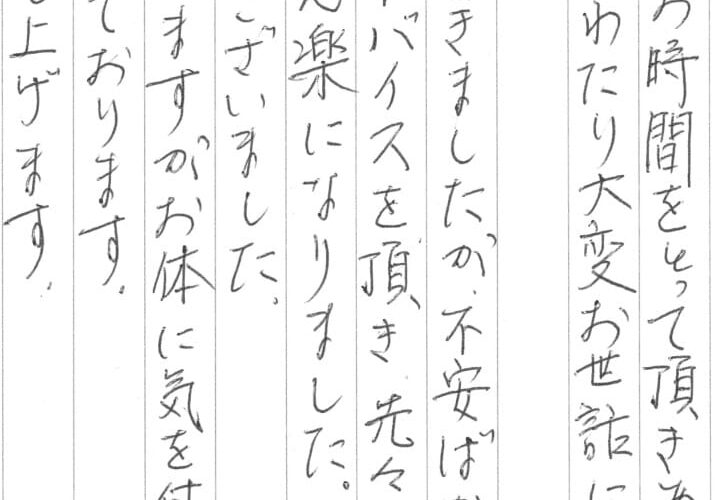 お時間をとって頂きあ
わたり大変お世話に
きましたが、不安ば
バイスを頂き、先々
楽になりました。
ございました。
ますがお体に気を付
ております。
上げます。